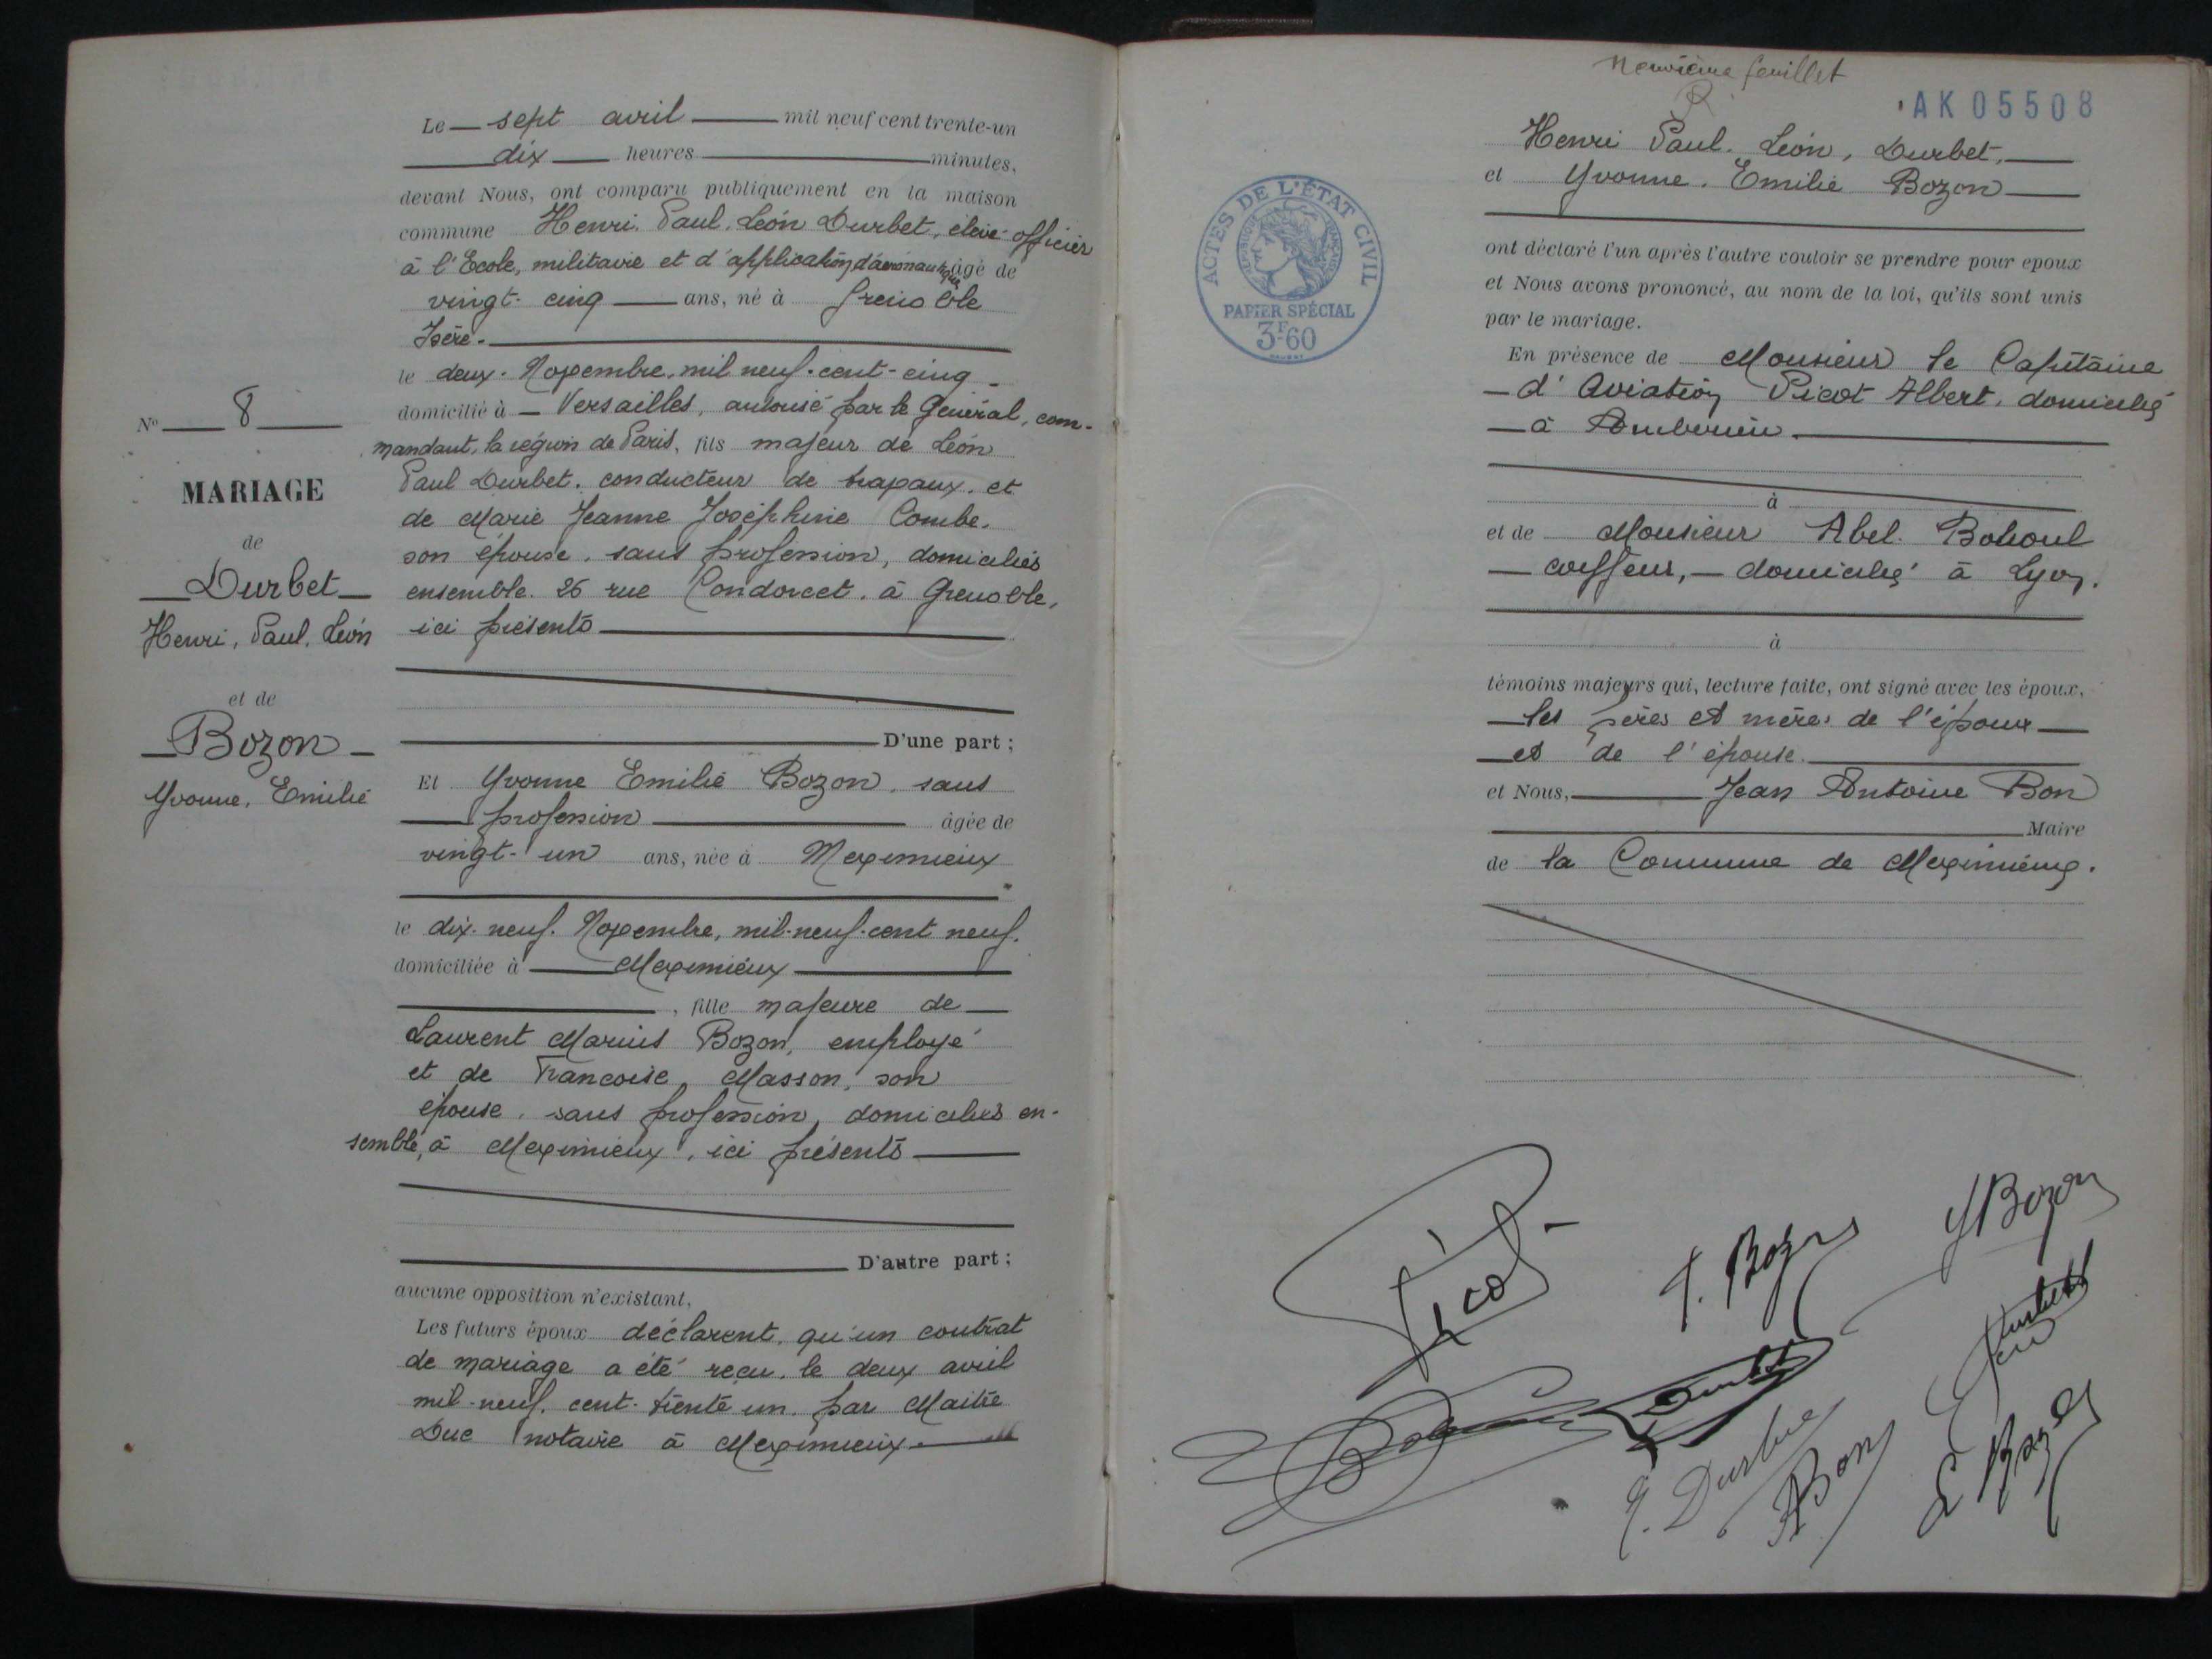 Le — sept avril — mil neuf cent trente-un
dix — heures — minutes,
devant Nous, ont comparu publiquement en la maison
commune Henri. Paul. Léon Durbet, élève-officier
à l'Ecole, militaire et d'application d'aéronautique âgé de
vingt-cinq — ans, né à Grenoble
Isère.
le deux. Novembre, mil neuf-cent-cinq
domicilié à — Versailles, autorisé par le Général, com-
mandant, la région de Paris, fils majeur de Léon
Paul Durbet. conducteur de travaux. et
de Marie Jeanne Joséphine Combe.
son épouse, sans profession, domiciliés
ensemble. 26 rue Condorcet. à Grenoble,
ici présents
D'une part ;
Et Yvonne Emilie Bozon, sans
profession — âgée de
vingt-un ans, née à Meximieux
le dix-neuf. Novembre, mil-neuf-cent neuf.
domiciliée à — Meximieux
, fille majeure de
Laurent Marius Bozon, employé
et de Francoise, Masson, son
épouse, sans profession, domiciliés en-
semble, à Meximieux, ici présents
D'autre part ;
aucune opposition n'existant,
Les futurs époux déclarent, qu'un contrat
de mariage a été reçu, le deux avril
mil-neuf. cent-trente un. par Maître
Duc notaire à Meximieux.
N° 8
MARIAGE
de
Durbet
Henri, Paul, Léon
et de
Bozon
Yvonne, Emilie
neuvième feuillet
AK 05508
Henri Paul. Léon, Durbet,
et Yvonne. Emilie Bozon
ont déclaré l'un après l'autre vouloir se prendre pour époux
et Nous avons prononcé, au nom de la loi, qu'ils sont unis
par le mariage.
En présence de Monsieur le Capitaine
— d'Aviation Picot Albert, domicilié
— à Ambérieu.
à
et de Monsieur Abel.
— coiffeur, — domicilié à Lyon.
à
témoins majeurs qui, lecture faite, ont signé avec les époux,
— les pères et mères de l'époux —
— et de l'épouse.
et Nous, — Jean Antoine Bon
Maire
de la Commune de Meximieux.
ACTES DE L'ÉTAT CIVIL
RÉPUBLIQUE FRANÇAISE
PAPIER SPÉCIAL
3F60
Picot
F. Bozon
Y Bozon
Durbet
Durbet
Bon
L Bozon